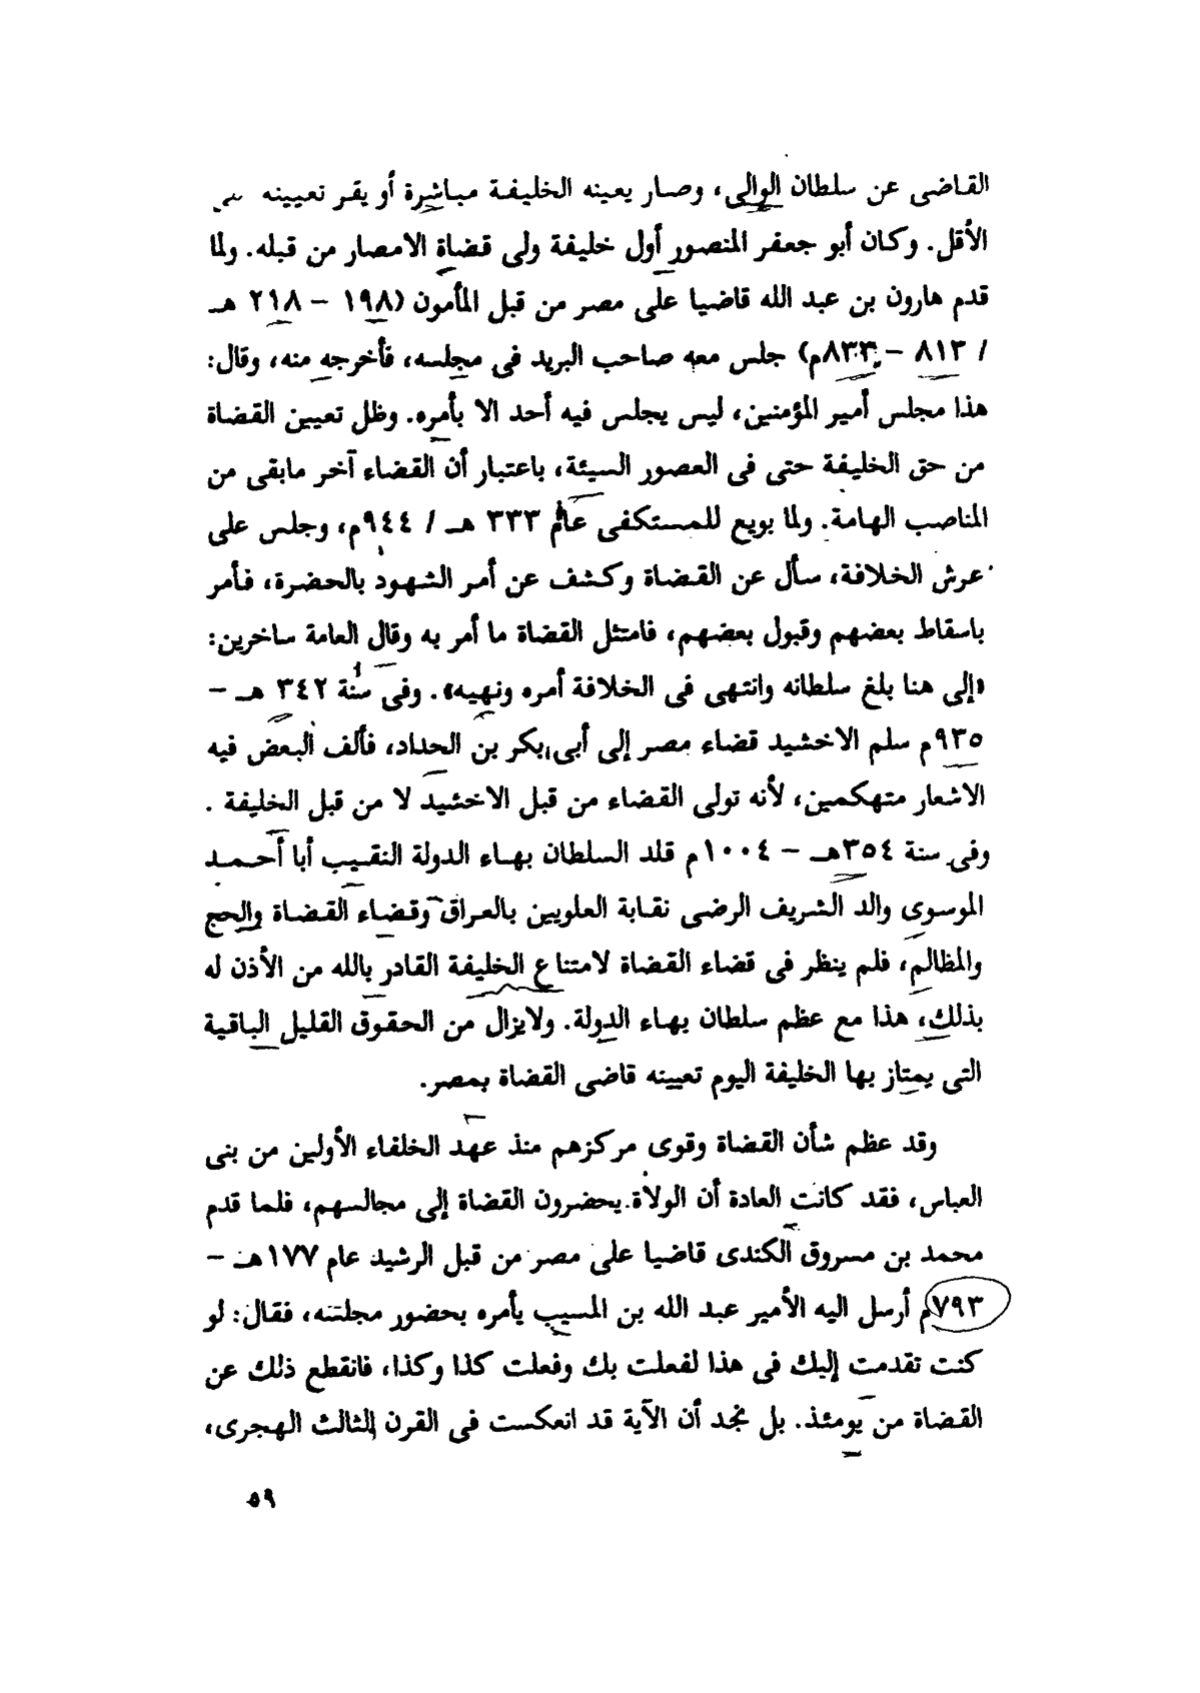 القاضى عن سلطان الوالى، وصار يعينه الخليفة مباشرة أو يقر تعيينه
الأقل. وكان أبو جعفر المنصور أول خليفة ولى قضاة الامصار من قبله. ولما
قدم هارون بن عبد الله قاضيا على مصر من قبل المأمون (١٩٨ – ٢١٨ هـ
/ ٨١٣ – ٨٣٣م) جلس معه صاحب البريد فى مجلسه، فأخرجه منه، وقال:
هذا مجلس أمير المؤمنين، ليس يجلس فيه أحد الا بأمره. وظل تعيين القضاة
من حق الخليفة حتى فى العصور السيئة، باعتبار أن القضاء آخر مابقى من
المناصب الهامة. ولما بويع للمستكفى عام ٣٣٣ هـ / ٩٤٤م، وجلس على
عرش الخلافة، سأل عن القضاة وكشف عن أمر الشهود بالحضرة، فأمر
باسقاط بعضهم وقبول بعضهم، فامتثل القضاة ما أمر به وقال العامة ساخرين:
«إلى هنا بلغ سلطانه وانتهى فى الخلافة أمره ونهيه». وفى سنة ٣٤٢ هـ –
٩٣٥م سلم الاخشيد قضاء مصر إلى أبى بكر بن الحداد، فألف البعض فيه
الاشعار متهكمين، لأنه تولى القضاء من قبل الاخشيد لا من قبل الخليفة .
وفى سنة ٣٥٤هـ – ١٠٠٤م قلد السلطان بهاء الدولة النقيب أبا أحمد
الموسوى والد الشريف الرضى نقابة العلويين بالعراق وقضاء القضاة والحج
والمظالم، فلم ينظر فى قضاء القضاة لامتناع الخليفة القادر بالله من الأذن له
بذلك، هذا مع عظم سلطان بهاء الدولة. ولايزال من الحقوق القليل الباقية
التى يمتاز بها الخليفة اليوم تعيينه قاضى القضاة بمصر.
وقد عظم شأن القضاة وقوى مركزهم منذ عهد الخلفاء الأولين من بنى
العباس، فقد كانت العادة أن الولاة يحضرون القضاة إلى مجالسهم، فلما قدم
محمد بن مسروق الكندى قاضيا على مصر من قبل الرشيد عام ١٧٧هـ –
٧٩٣م أرسل اليه الأمير عبد الله بن المسيب يأمره بحضور مجلسه، فقال: لو
كنت تقدمت إليك فى هذا لفعلت بك وفعلت كذا وكذا، فانقطع ذلك عن
القضاة من يومئذ. بل نجد أن الآية قد انعكست فى القرن الثالث الهجرى،
٥٩